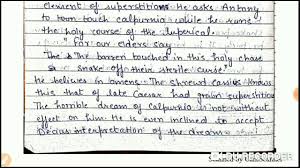 element of superstitions. He asks Antony
to touch calpurnia while he runs
the holy course of the lupercal.
" for our elders say
The barren touched in this holy chase
Shake off their sterile curse.
he believes in omens. The shrewd cassius knows
this that of late Caesar had grown superstitious
The horrible dream of calpurnia is not without
effect on him. He is even inclined to accept
Decius interpretation of the dreams